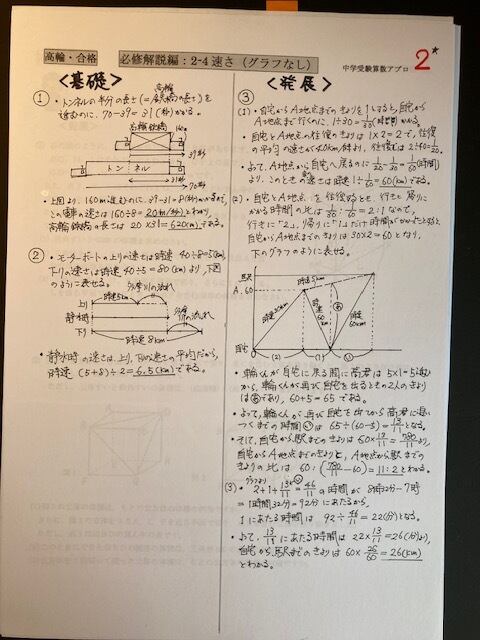 高輪・合格 必修解説編：2-4 速さ（グラフなし）
中学受験算数アプロ 2*
<基礎>
①・トンネルの半分の長さ(=高輪鉄橋の長さ)を
進むのに、70-39=31(秒)かかる。
高輪鉄橋
160m
31秒
トンネル
39秒
31秒
70秒
・上図より、160m進むのに 39-31=8(秒)かかるので、
この電車の速さは160÷8=20m/(秒)とわかり、
高輪鉄橋の長さは 20×31=620(m)である。
②・モーターボートの上りの速さは時速 40÷8=5(km)、
下りの速さは時速 40÷5=8(km)より、下図
のように表せる。
多摩川の流れ
上り 時速5km
静水時
多摩川の流れ
下り
時速8km
・静水時の速さは、上り、下りの速さの平均だから、
時速 (5+8)÷2=6.5(km)である。
<発展>
③
(1)・自宅からA地点までのきょりを1とすると、自宅から
A地点まで行くのに、1÷30=1/30(時間)かかる。
・自宅とA地点の往復のきょりは 1×2=2で、往復
の平均の速さが40km/時より、往復には 2÷40=1/20
・よって、A地点から自宅へ戻るのに 1/20-1/30=1/60(時間)
より、このときの速さは時速 1÷1/60=60(km)である。
(2)・自宅とA地点を往復するとき、行きと帰りに
かかる時間の比は 1/30:1/60=2:1なので、
行きに「2」、帰りに「1」だけ時間がかかったとすると、
自宅からA地点までのきょりは 30×2=60となり、
下のグラフのように表せる。
駅
時速5km
A.60
時速30km
時速60km
時速60km
自宅
(2)
(1)
・輪くんが自宅に戻る間に高君は 5×1=5進む
から、輪くんが再び自宅を出るときの2人のきょり
は、60+5=65である。
・よって、輪くんが再び自宅を出てから高君に追い
つくまでの時間は 65÷(60-5)=13/11となる。
・そして、自宅から駅までのきょりは 60×13/11=780/11より、
自宅からA地点までのきょりと、A地点から駅までの
きょりの比は 60:(780/11-60)=11:2とわかる。
グラフより
(3)・2+1+13/11=46/11の時間が 8時32分-7時
=1時間32分=92分にあたるから、
1にあたる時間は 92÷46/11=22(分)となる。
・よって、13/11にあたる時間は 22×13/11=26(分)より、
自宅から駅までのきょりは 60×26/60=26(km)
とわかる。